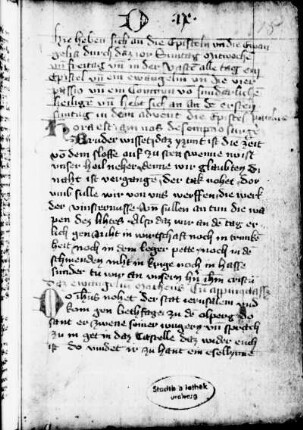 D ix
Hie heben sich an die Epistelň vn̄ die Ewan
gelia durch daz ior Sūntag mitwoche
vn̄ fritag vn̄ in der vasten alle tag ein
Epistel vn̄ ein ewangeliū vn̄ die vier
passio vn̄ ein Comūn vō sunderliche
heiligē vn̄ hebt sich an an dē ersten
suntag in dem advent die epistel
Hora est iam nos de sompno surge
Bruder wisset daz yzunt ist die zeit
vō dem sloffe auf zu sten wenne
vnser heil neher denne wir glaubten die
naht ist vergangē der tak nohet dor
vmb sulle wir von vns werffen die werk
der vinsternisse vn̄ sullen an tun die wa
pen des lihtes Also daz wir an dē tag er
lich gen niht in wirtschaft noch in trunkē
heit noch in dem leger pette noch in
niht in krige noch in hasse
sunder tu wir an vnsern hērn ihm cristū
Daz ewangeliū Cū appropinquasset
Do ihūs nohet der stat ierusalem vnd
kom gen bethfage zu dē olperg do
sant er zwene seiner iungern vn̄ sprach
zu in get in daz Castelle daz wider euch
ist do vindet ir zu hant ein eselynne
Stadtbibliothek